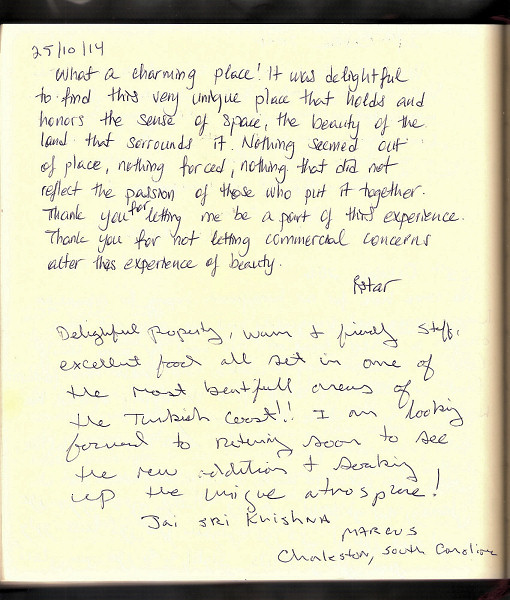 25/10/14
What a charming place! It was delightful
to find this very unique place that holds and
honors the sense of space, the beauty of the
land that sorrounds it. Nothing seemed out
of place, nothing forced, nothing that did not
reflect the passion of those who put it together.
Thank you for letting me be a part of this experience.
Thank you for not letting commercial concerns
alter this experience of beauty.
Delightful Property, warm & friendly staff,
excellent food all set in one of
the most beatifull areas of
the Turkish Coast!! I am looking
forward to returning soon to see
the new addition & soaking
up the unique atmosphere!
Jai SRI Krishna
MARCUS
Charleston, South Carolina